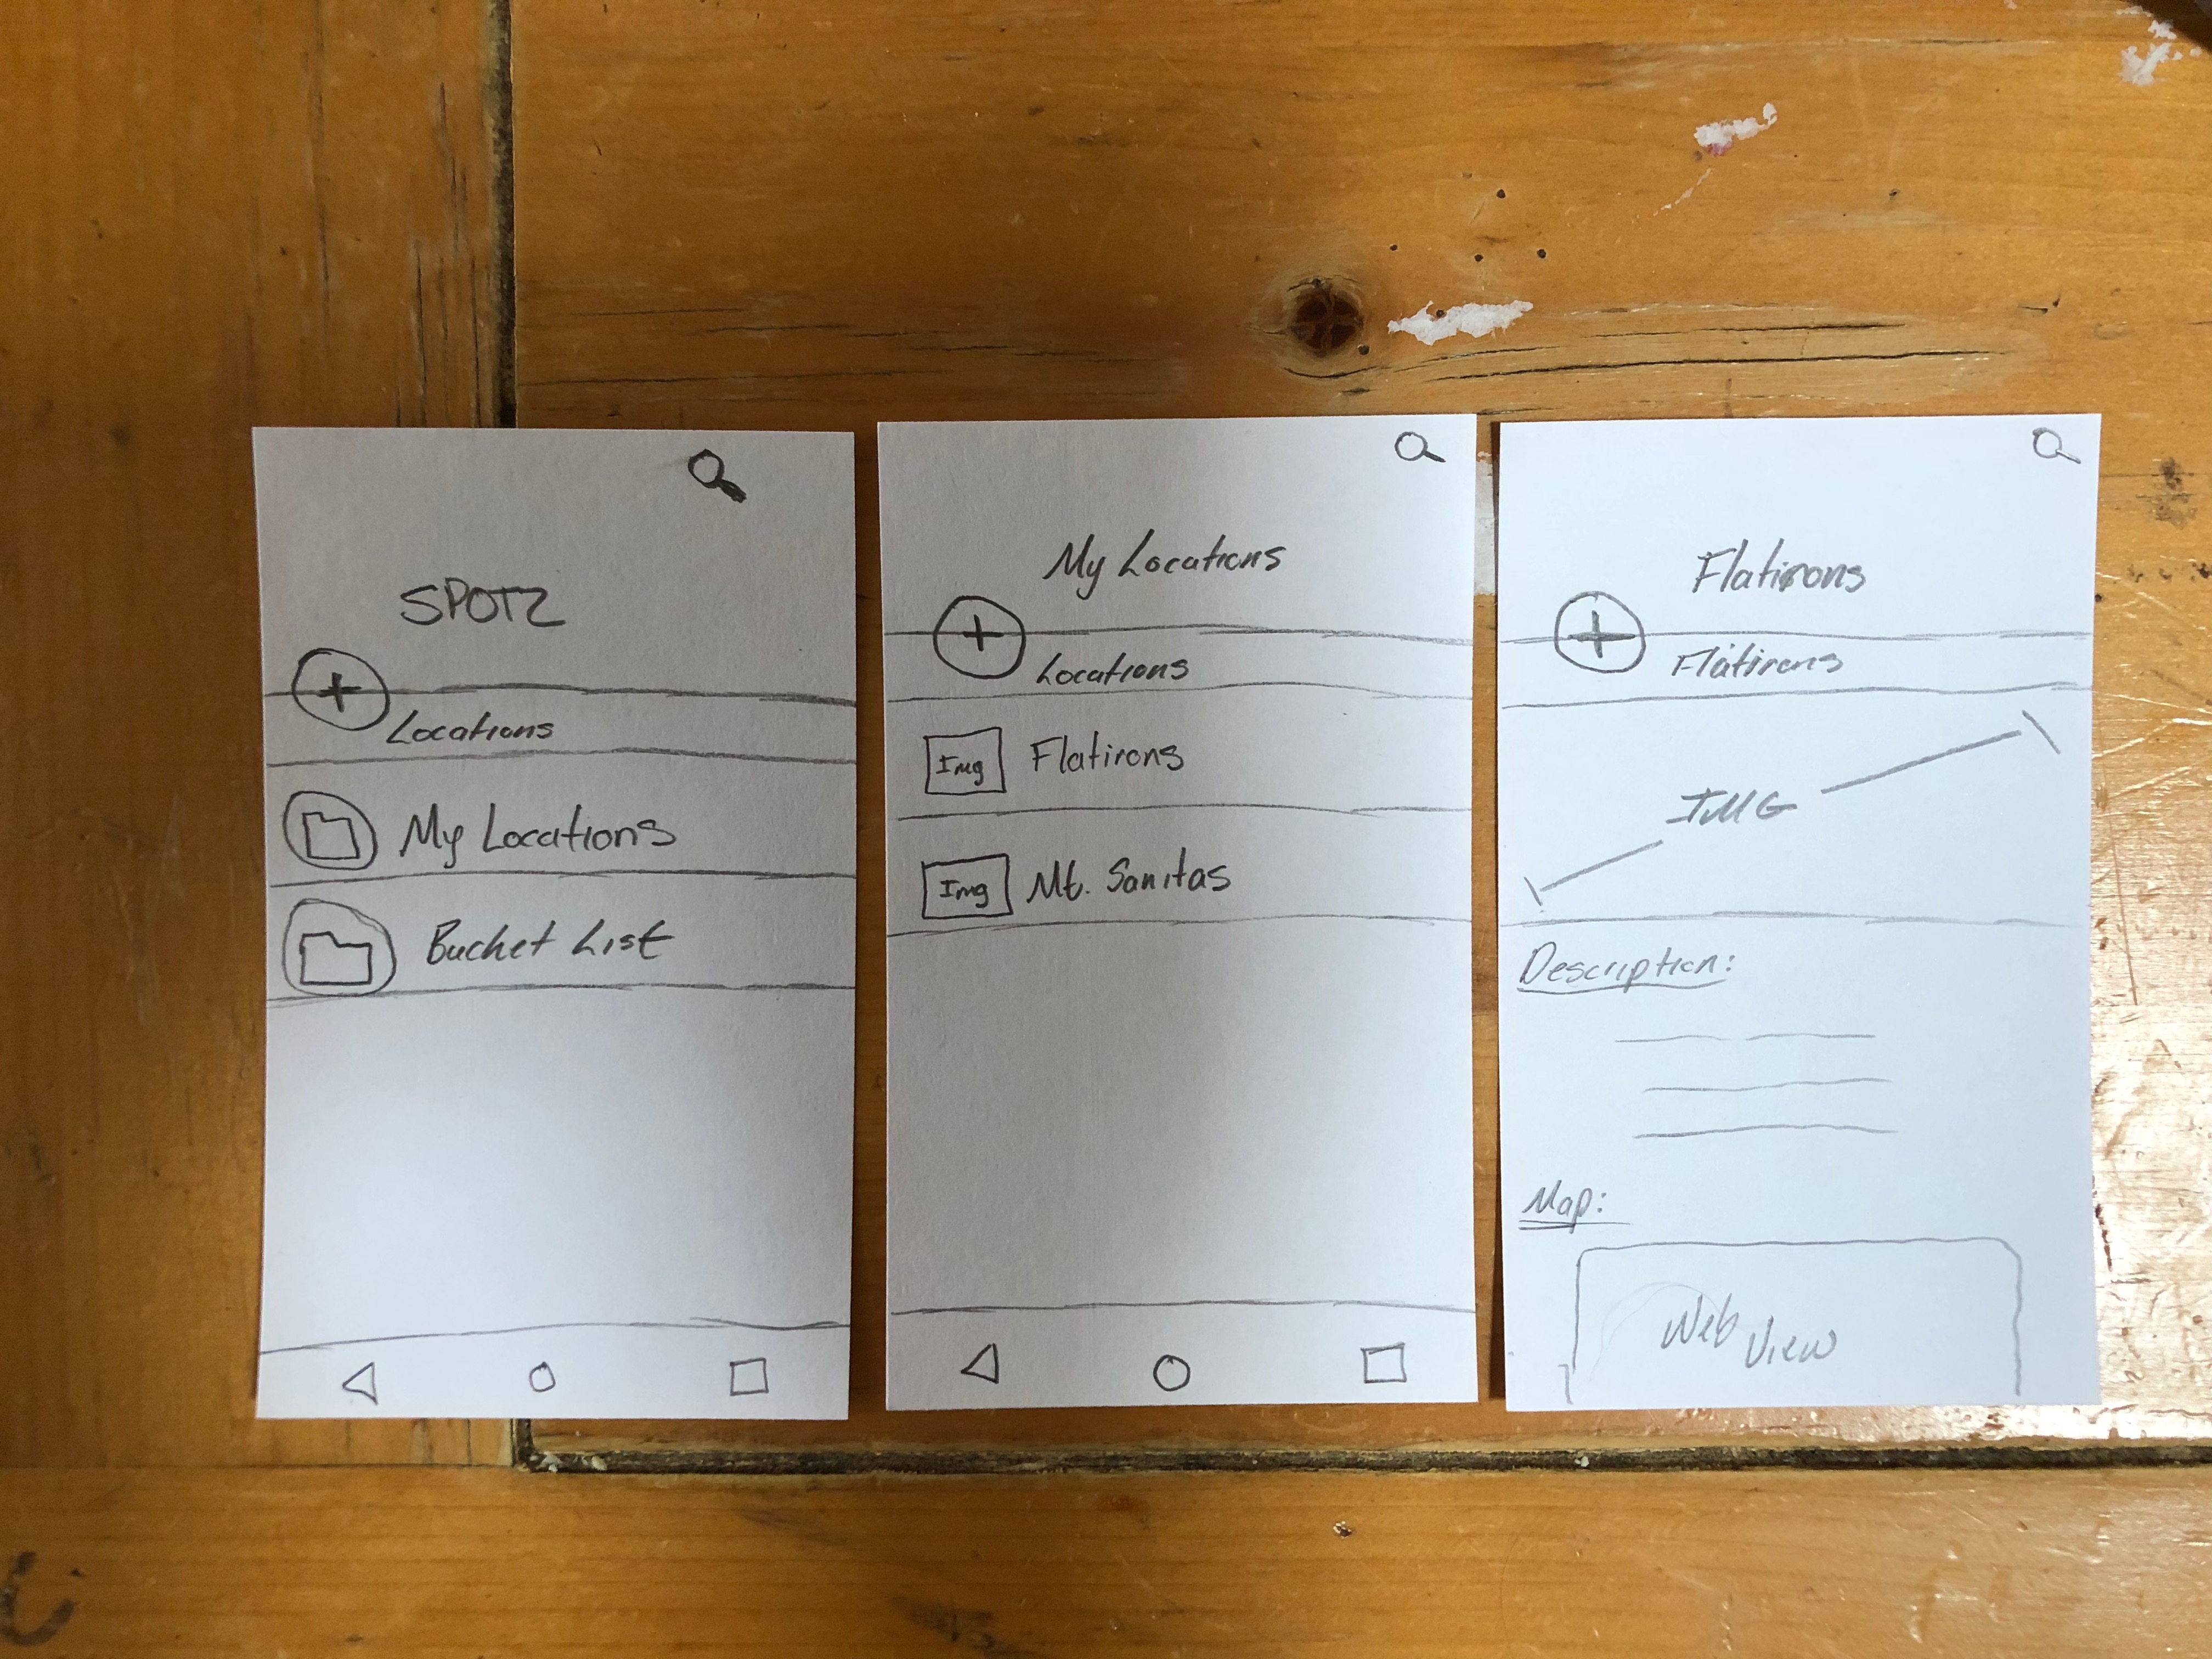 SPOTZ
Locations
My Locations
Bucket List
My Locations
Locations
Img Flatirons
Img Mt. Sanitas
Flatirons
Flatirons
IMG
Description:
Map:
Web View